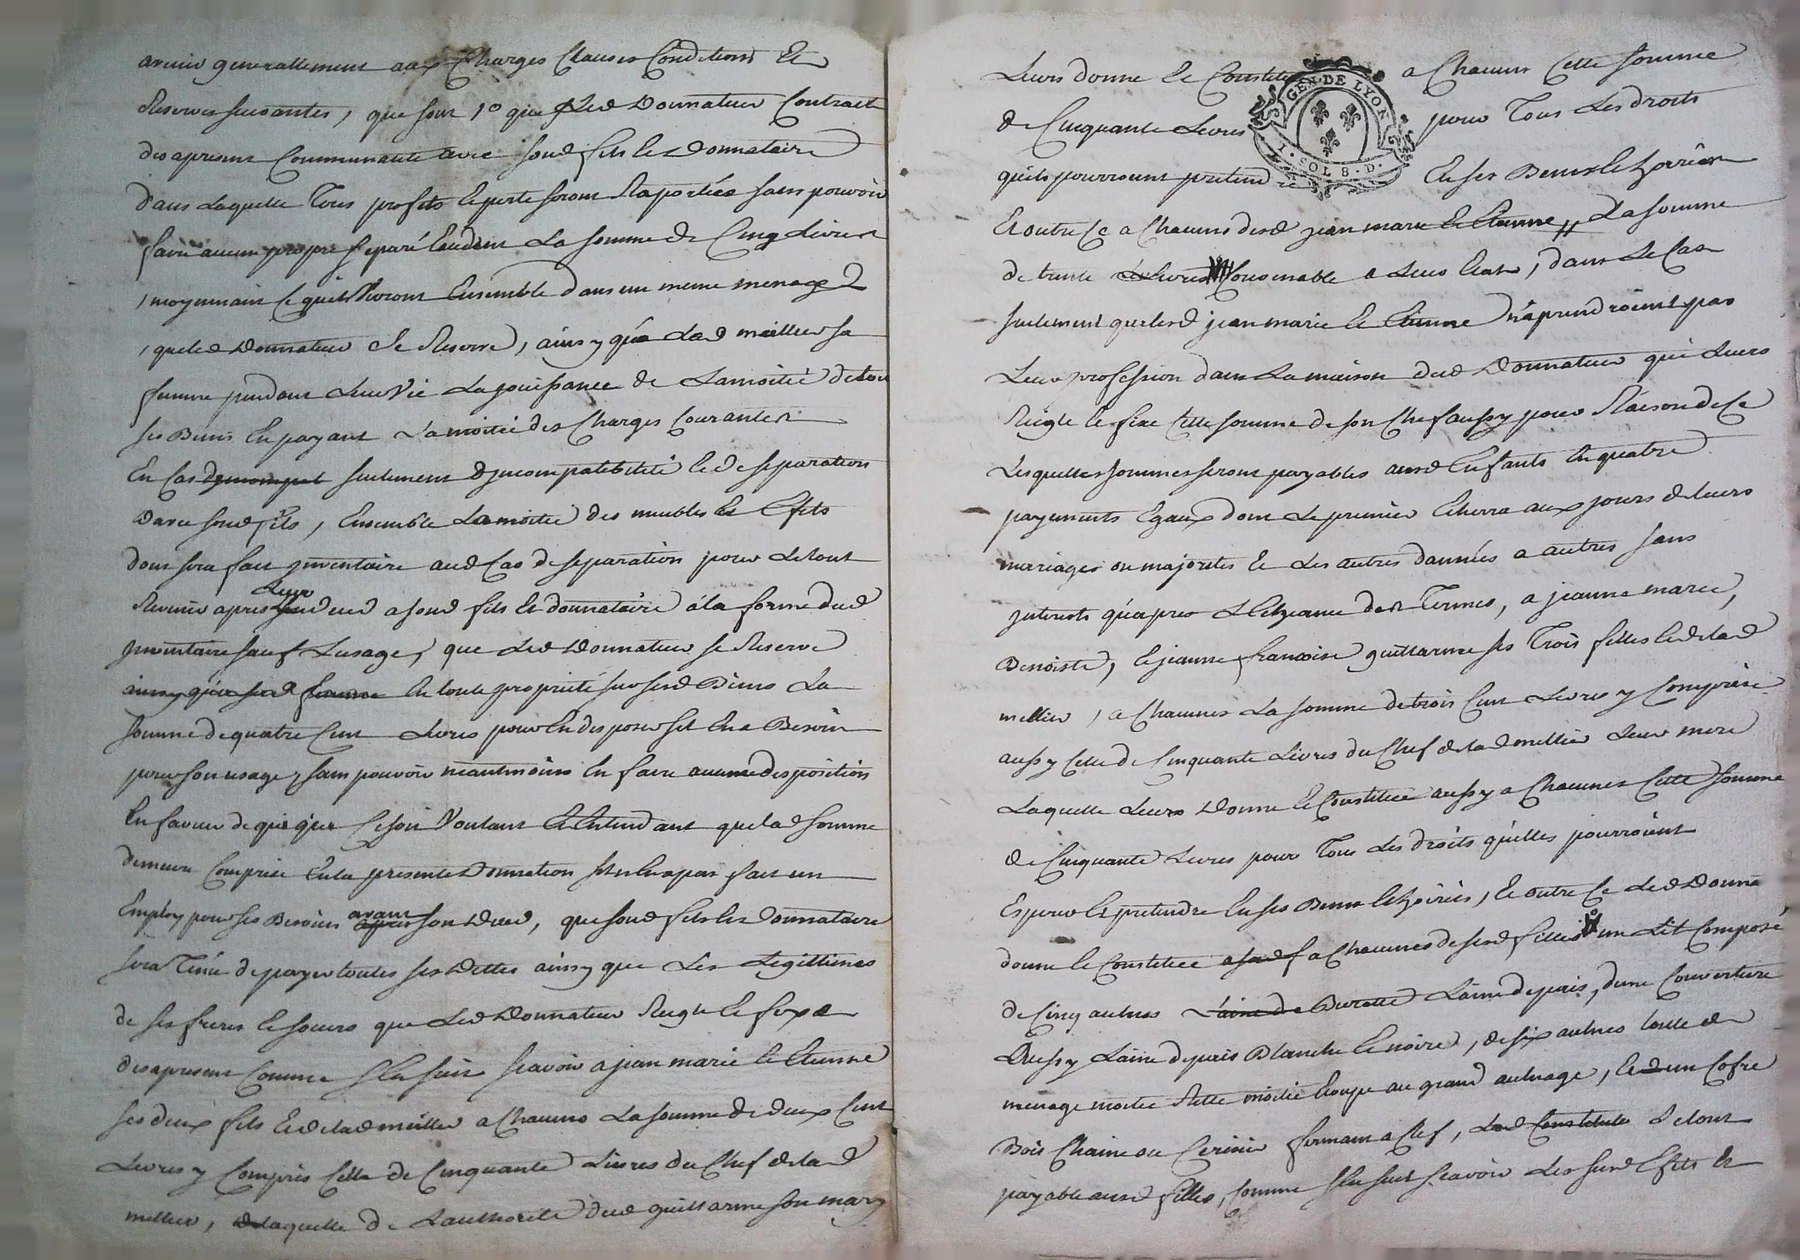 avenir generallement aux Charges Clauses Conditions Et
Reserves suivantes, que sont 1° que Led Donnateur Contracte
des apresent Communauté avec sond fils Le Donnataire
dans Laquelle Tous profits et perte seront Raportées sans pouvoir
faire aucun propre separé Excedent La somme de Cinq Livres
, moyennant ce quils vivront Ensemble dans un meme menage
, que led Donnateur Se Reserve, ainsy qua Lad meillier sa
femme pendant Leur Vie La jouissance de La moitié de tous
ses Biens En payant La moitié des Charges Courantes
En Cas seulement d'jncompatibilité et de separation
Davec sond fils, Ensemble La moitié des meubles Et Effets
dont sera fait jnventaire aud Cas de separation pour Le tout
Revenir apres Leur deced a sond fils Le donnataire a la forme dud
jnventaire sauf Lusage, que Led Donnateur se Reserve
ainsy qua sad femme En toute propriété sur sesd Biens La
somme de quatre Cent Livres pour En disposer sil En a Besoin
pour son usage, sans pouvoir neantmoins En faire aucune disposition
En faveur de qui que Ce soit Voulant Et Entendant que lad somme
demeure Comprise En la presente Donnation sil n'En a pas fait un
Employ pour ses Besoins avant son Deced, que sond fils Le Donnataire
sera Tenu de payer toutes ses Dettes ainsy que Les Legitimes
de ses freres et soeurs que Led Donnateur Regle et fixe
des apresent Comme s'En suit scavoir a jean marie et Etienne
ses deux fils Et de lad meillier a Chacuns La somme de deux Cent
Livres y Compris Celle de Cinquante Livres du Chef de lad
mellier, Laquelle de Lauthorité dud guillarme son mary
Leurs donne et Constitue a Chacuns Cette somme
GEN. DE LYON
de Cinquante Livres pour Tous Les droits
I. SOL 8. D.
quils pourroient pretendre En ses Biens et hoiries
Et outre Ce a Chacuns desd jean marie et Etienne La somme
de trente Livres Convenable a Leur Etat, dans Le Cas
seulement que lesd jean marie et Etienne n'aprendroient pas
Leur profession dans La maison dud Donnateur qui Leurs
Regle et fixe Cette somme de son Chef aussy pour Raison de Ce
Lesquelles sommes seront payables ausd Enfants En quatre
payements Egaux dont Le premier Echerra aux jours de leurs
mariages ou majorites et Les autres dannées a autres sans
jnterets quapres L'Echeance des Termes, a jeanne marie,
Benoiste, et jeanne francoise guillarme ses Trois filles et de lad
mellier, a Chacunes La somme de trois Cent Livres y Comprise
aussy Celle de Cinquante Livres du Chef de lad mellier Leur mere
Laquelle Leurs Donne et Constitue aussy a Chacunes Cette somme
de Cinquante Livres pour Tous Les droits quelles pourroient
Esperer et pretendre En ses Biens et hoiries, Et outre Ce Led Donna
donne et Constitue a Chacunes de sesd filles un Lit Composé
de Cinq aulnes Laine de pais, dune Couverture
Laine de pais Blanche et noire, de six aulnes toille de
menage moitié Ritte moitié Etoupe au grand aulnage, et un Cofre
Bois Chaine ou Cerisier fermant a Clef, Le tout
payable ausd filles, Comme s'En suit scavoir Les susd Effets Et